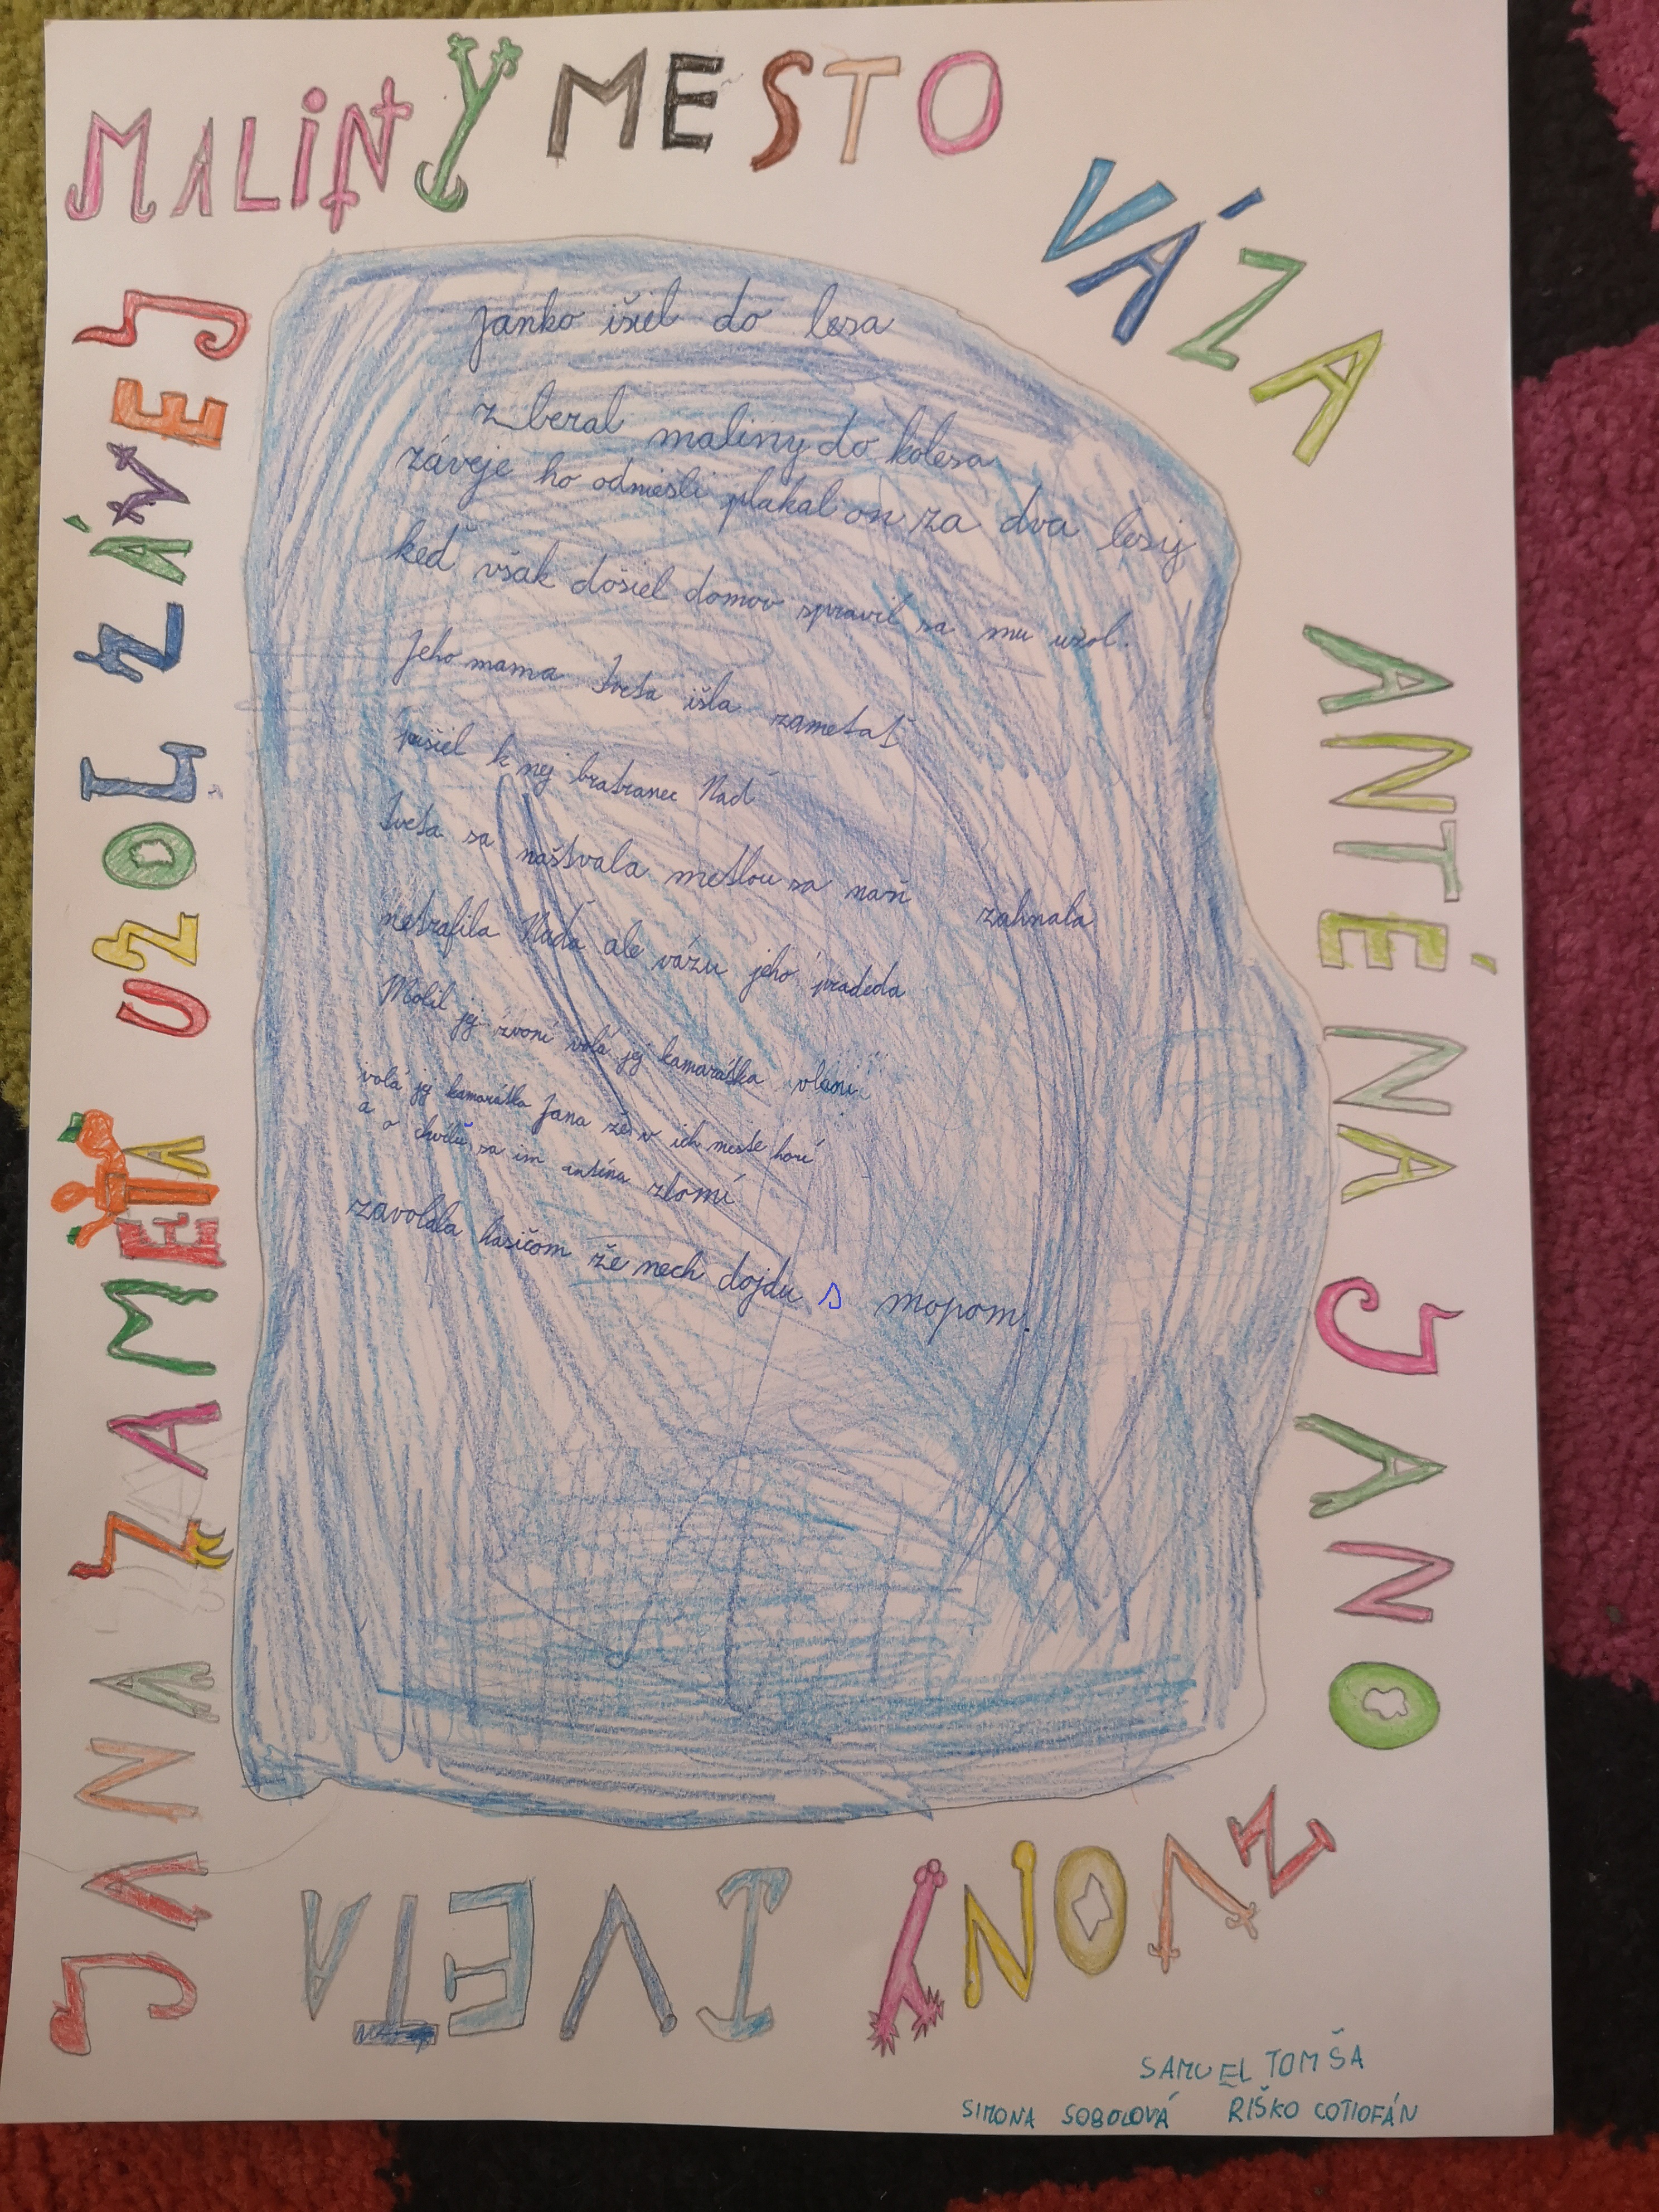 MALINY MESTO VÁZA
ANTÉNA JANO
ZVONY IVETA
JANA ZAMETÁ UZOL ZÁVEJ
Janko išiel do lesa
zberal maliny do kolesa
záveje ho odniesli plakal on za dva lesy
keď však došiel domov spravil sa mu uzol.
Jeho mama Iveta išla zametať
prišiel k nej bratranec Naď
Iveta sa naštvala metlou sa naň zahnala
netrafila Naďa ale vázu jeho pradeda
Mobil jej zvoní volá jej kamarátka
volá jej kamarátka Jana že v ich meste horí
a
o chvíľu sa im anténa zlomí
zavolala hasičom že nech dojdu s mopom.
SAMUEL TOMŠA
SIMONA SOBOLOVÁ RIŠKO COTIOFÁN